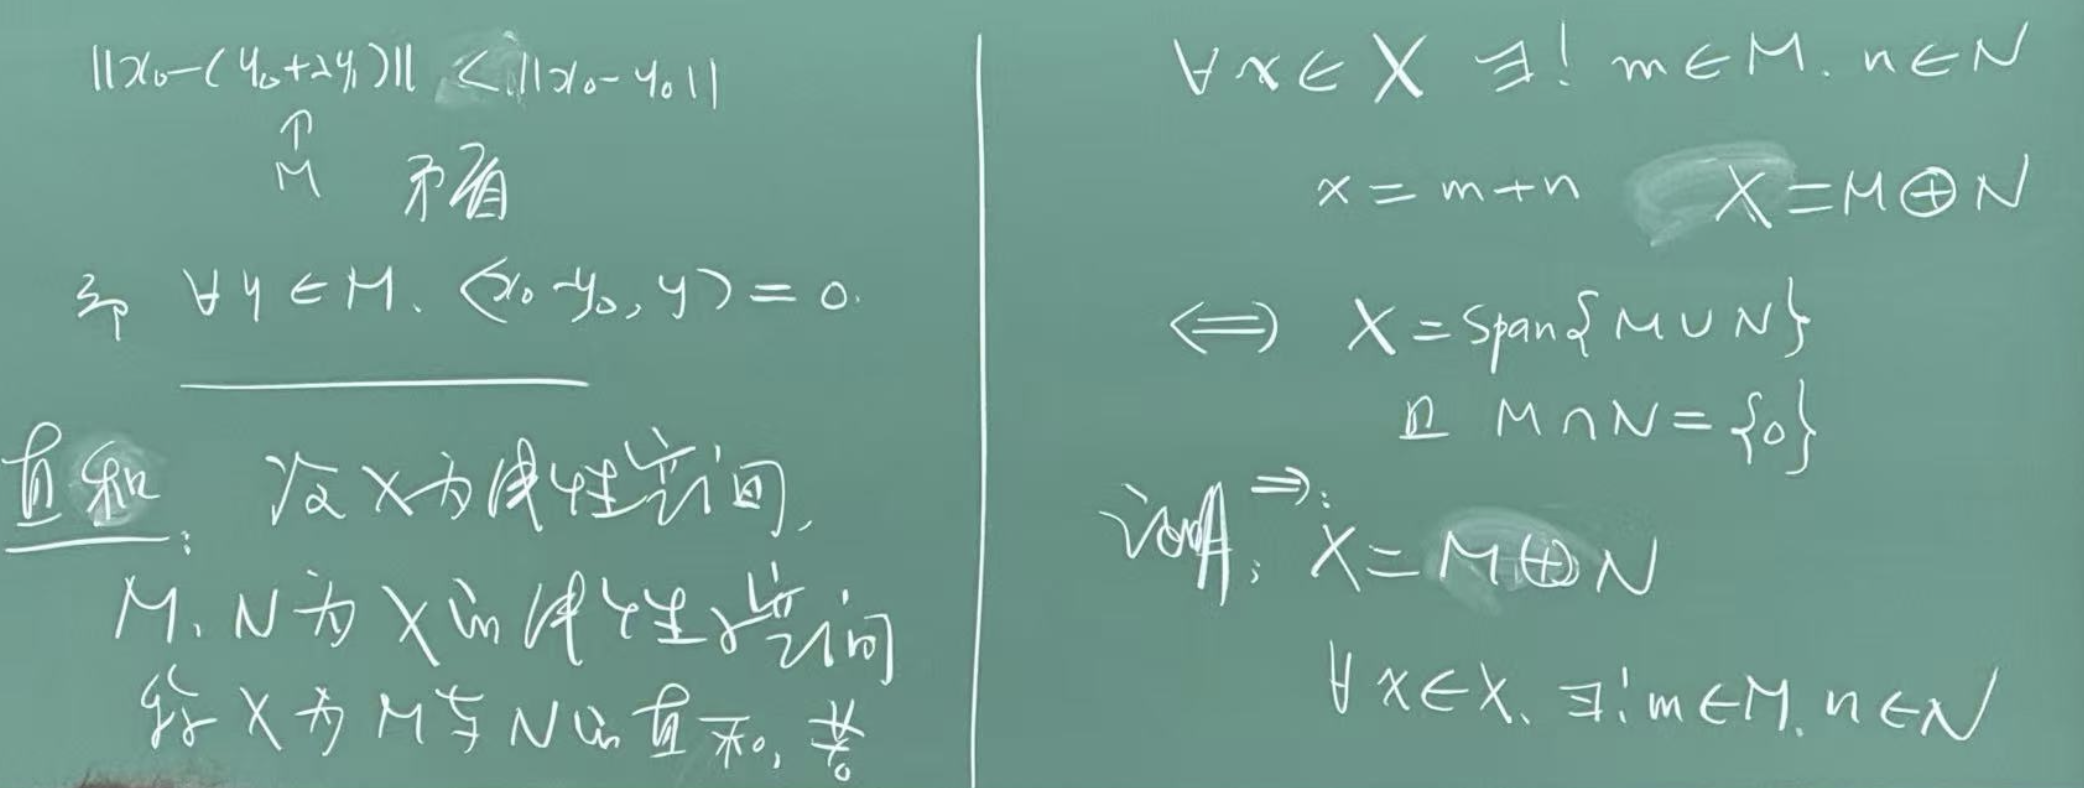 ||x₀-(y₀+λy₁)|| < ||x₀-y₀||
↑
M 矛盾
即 ∀y∈M. <x₀-y₀, y> = 0.
直和: 设X为线性空间,
M. N为X的线性子空间
称X为M与N的直和, 若
∀x∈X ∃! m∈M. n∈N
x=m+n X=M⊕N
⟺ X=Span{M∪N}
且 M∩N={0}
证明: ⇒: X=M⊕N
∀x∈X. ∃! m∈M. n∈N